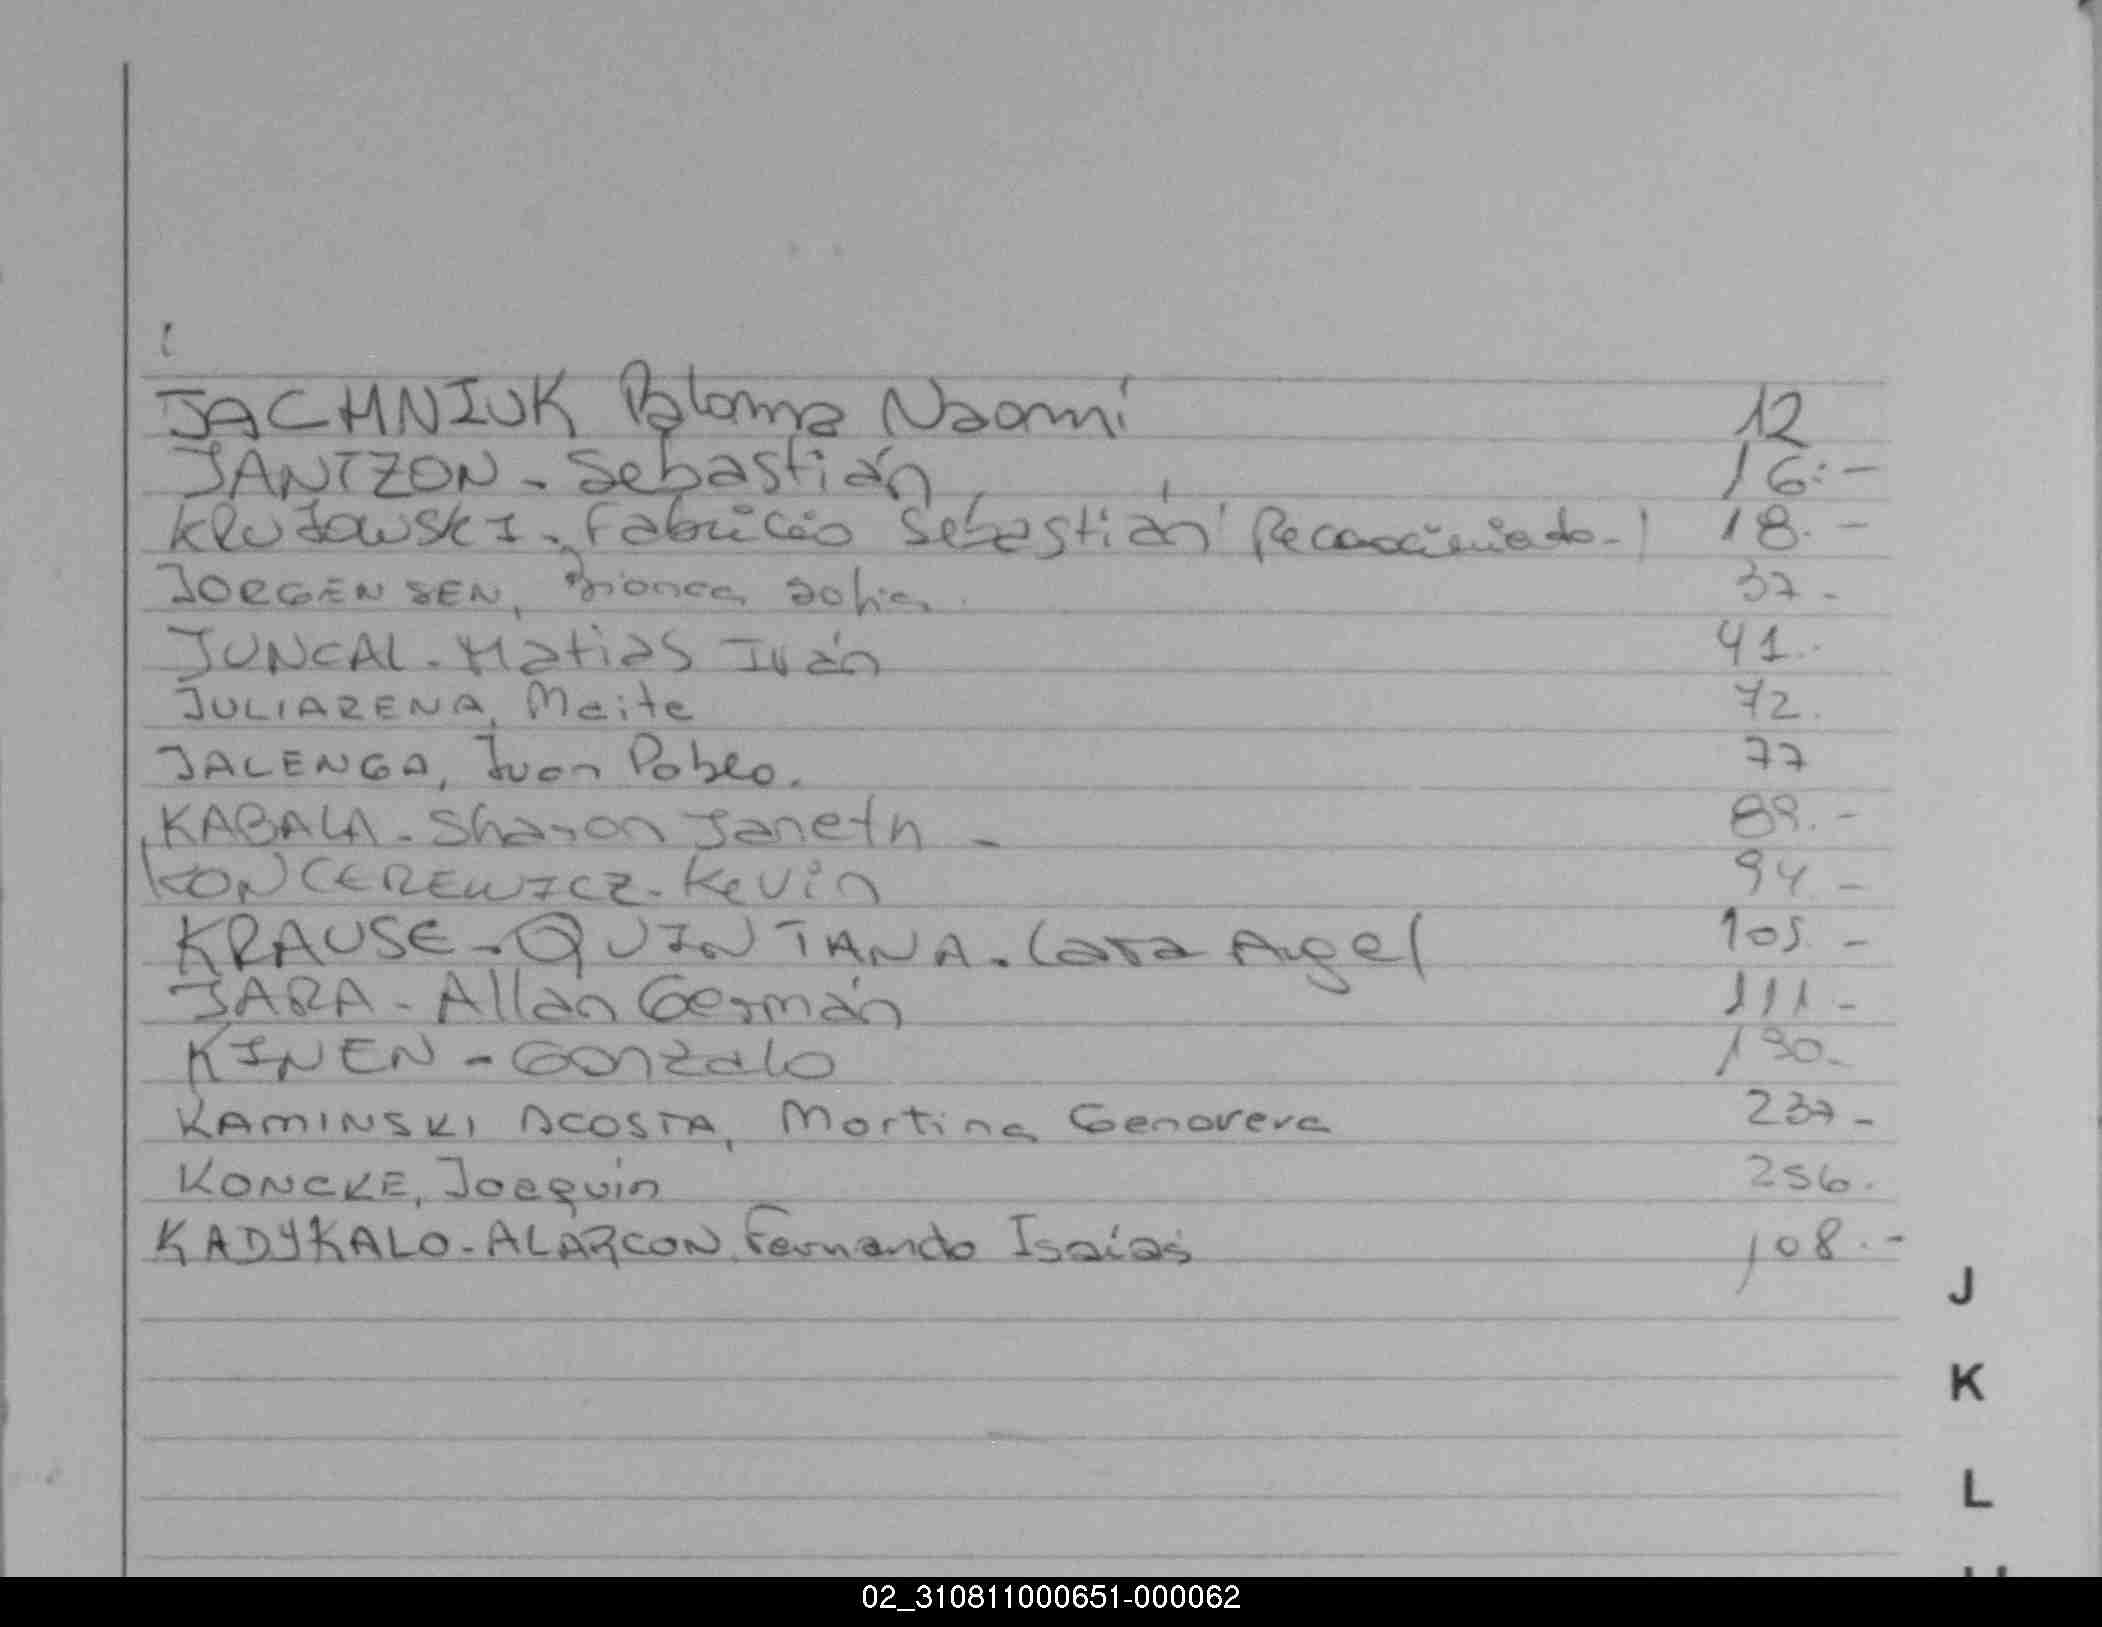 JACHNIUK Paloma Naomi 12
JANTZON - Sebastián 16.-
KRUJOWSKI - Fabricio Sebastián Reconocimiento - 18.-
JORGENSEN, Bianca Sofia. 37-
JUNCAL - Matias Iván 41.
JULIARENA, Maite 72.
JALENGA, Juan Pablo. 77
KABALA - Sharon Janeth - 89.-
KONCEREWICZ - Kevin 94-
KRAUSE - QUINTANA - Lara Angel 105-
JARA - Allan Germán 111-
KINEN - Gonzalo 190-
KAMINSKI ACOSTA, Martina Genoveva 237-
KONCKE, Joaquin 256.
KADYKALO - ALARCON Fernando Isaías 108.-
J
K
L
02_310811000651-000062